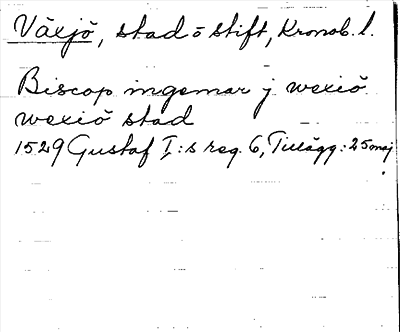 Växjö, stad o stift, Kronob. l.
Biscop ingemar j wexiö
wexiö stad
1529 Gustaf I:s reg. 6, Tillägg: 25 maj